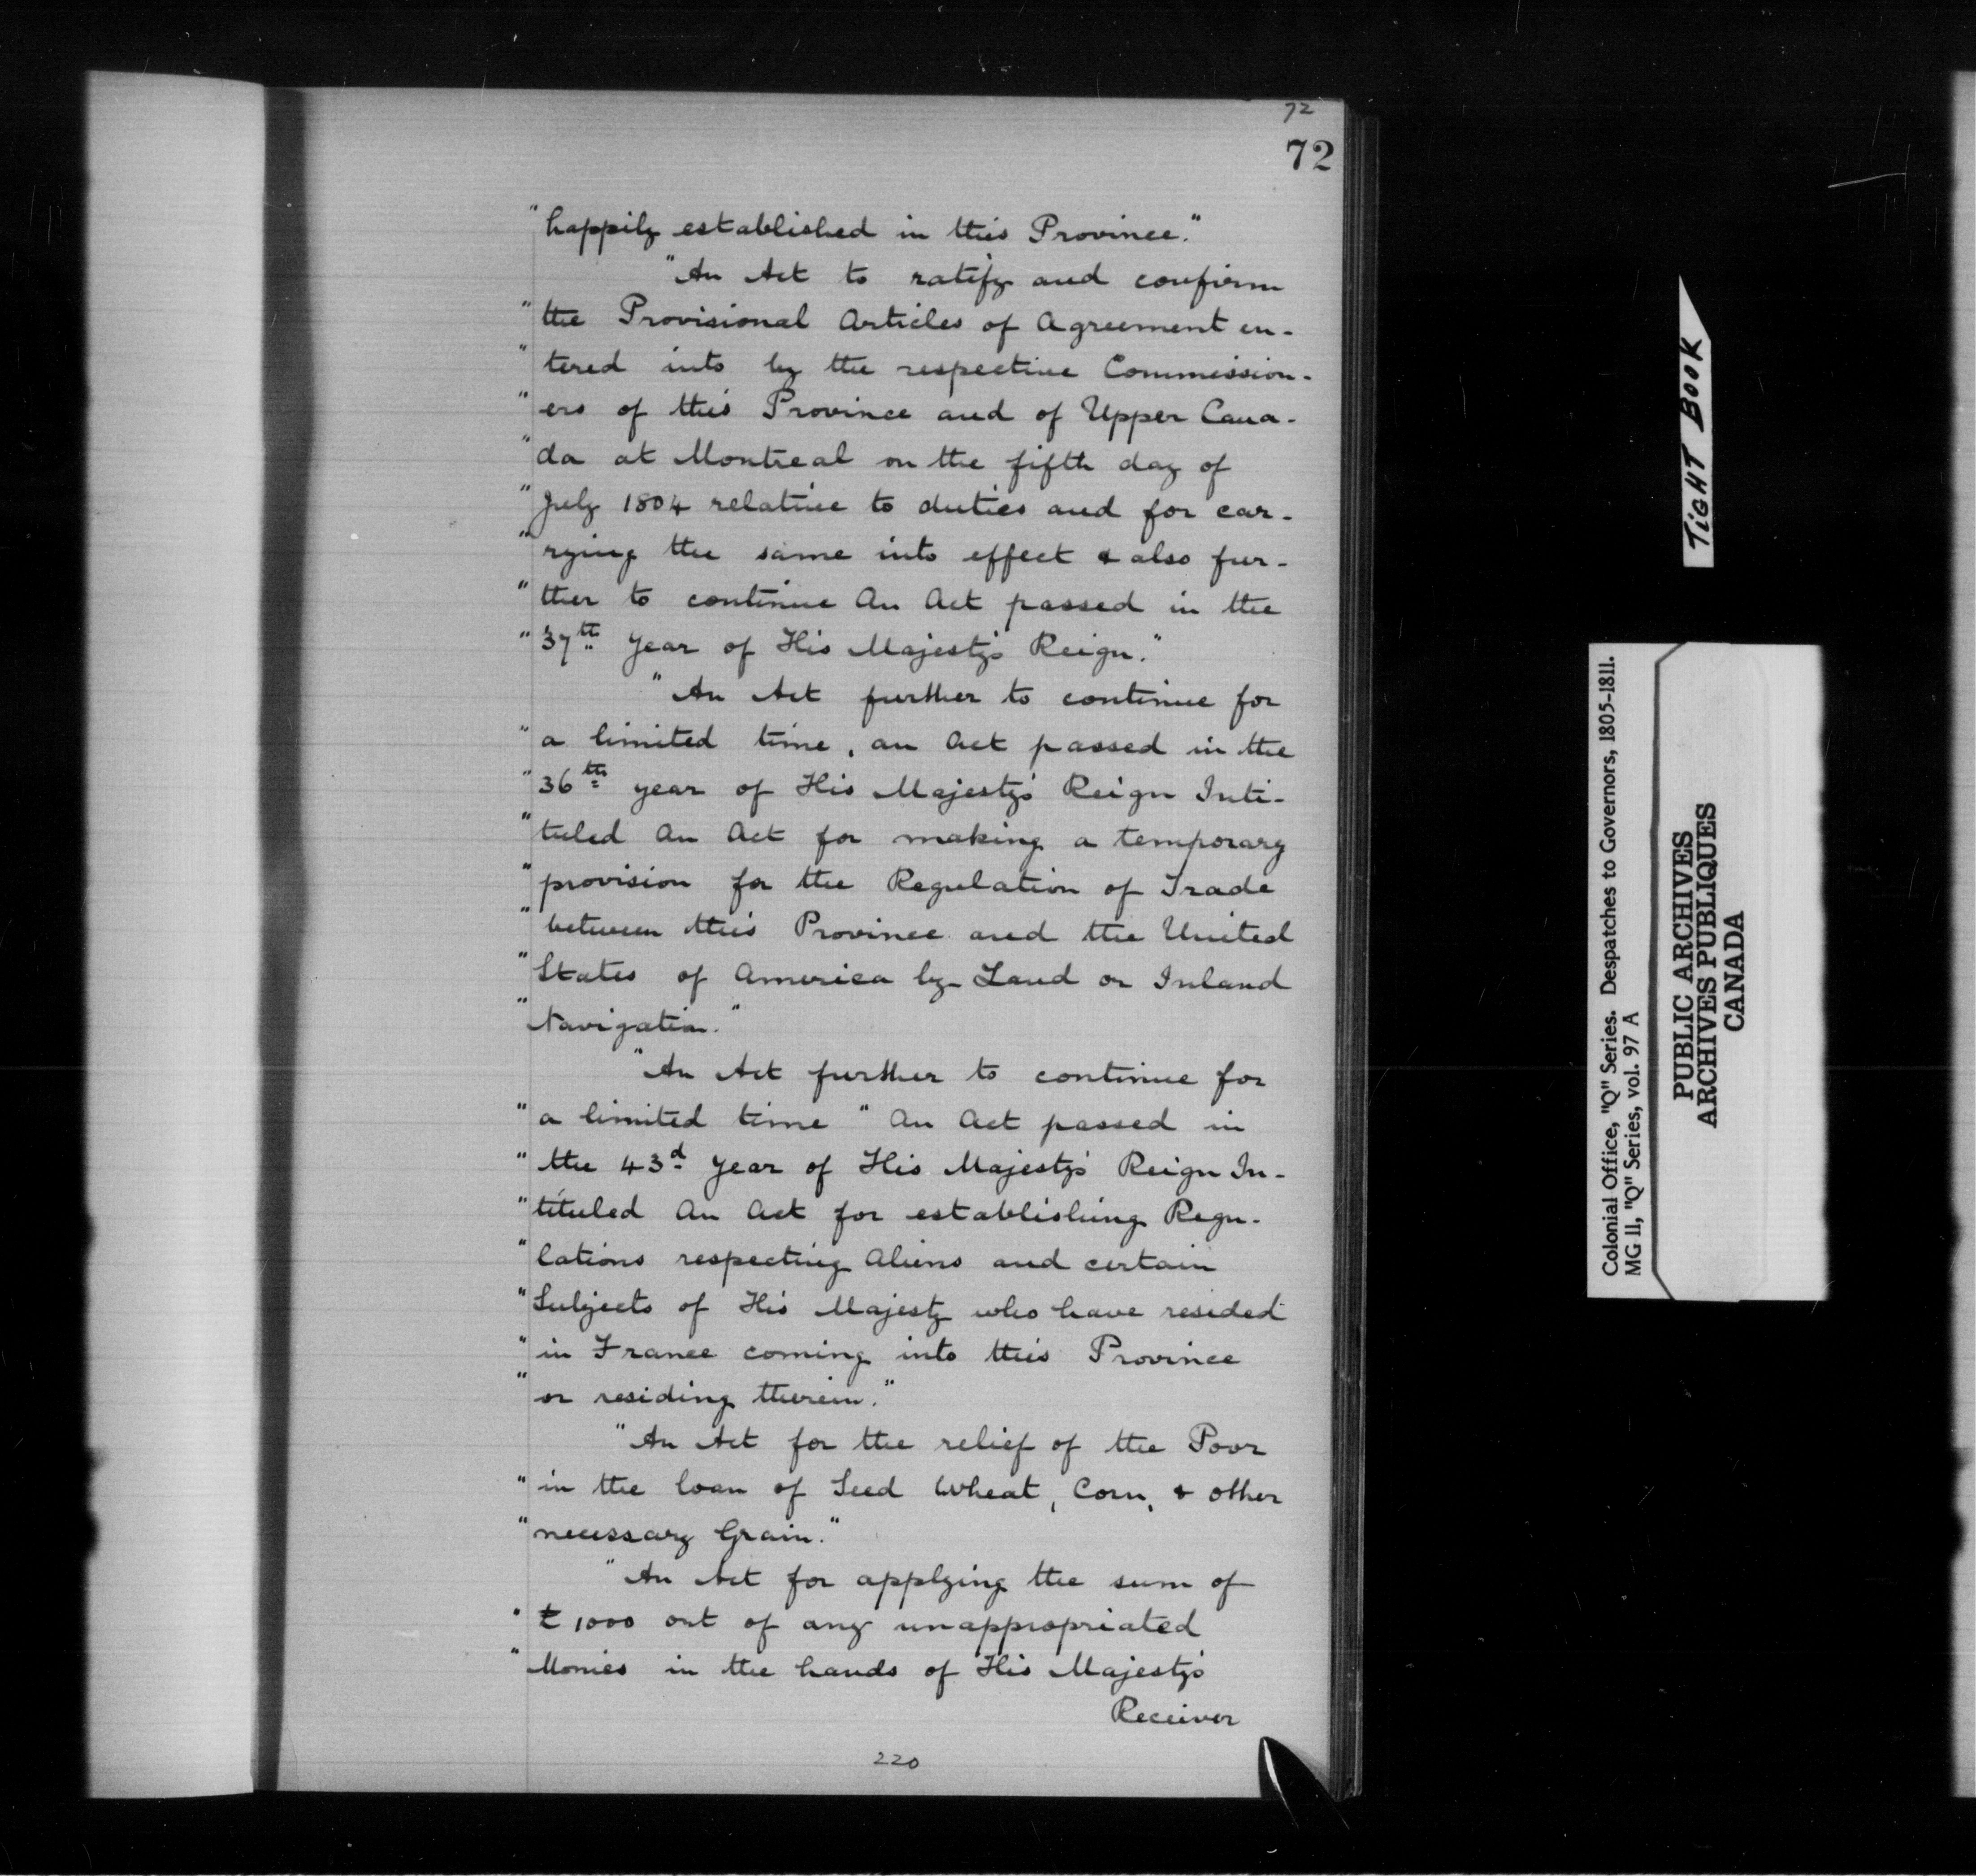 72
72
"happily established in this Province."
"An Act to ratify and confirm
"the Provisional Articles of Agreement en-
"tered into by the respective Commission-
"ers of this Province and of Upper Cana-
"da at Montreal on the fifth day of
"July 1804 relative to duties and for car-
"rying the same into effect & also fur-
"ther to continue An Act passed in the
"37th Year of His Majesty's Reign."
"An Act further to continue for
"a limited time, an Act passed in the
"36th year of His Majesty's Reign Inti-
"tuled An Act for making a temporary
"provision for the Regulation of Trade
"between this Province and the United
"States of America by Land or Inland
"Navigation."
"An Act further to continue for
"a limited time "An Act passed in
"the 43d Year of His Majesty's Reign In-
"tituled An Act for establishing Regu-
"lations respecting Aliens and certain
"Subjects of His Majesty who have resided
"in France coming into this Province
"or residing therein."
"An Act for the relief of the Poor
"in the loan of Seed Wheat, Corn, & other
"necessary Grain."
"An Act for applying the sum of
"£1000 out of any unappropriated
"Monies in the hands of His Majesty's
Receiver
220
TIGHT BOOK
Colonial Office, "Q" Series. Despatches to Governors, 1805-1811.
MG 11, "Q" Series, vol. 97 A
PUBLIC ARCHIVES
ARCHIVES PUBLIQUES
CANADA